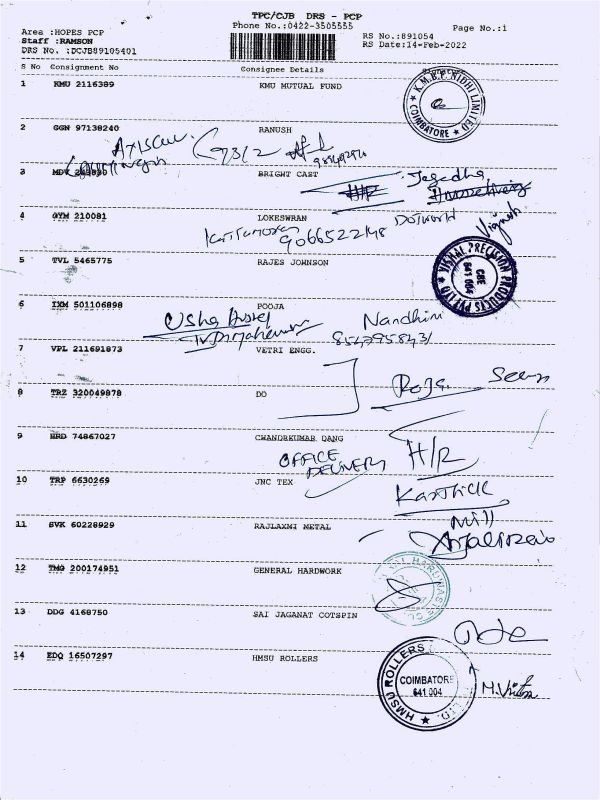 TPC/CJB DRS - PCP
Phone No.:0422-3505555
Page No.:1
Area :HOPES PCP
Staff :RAMSON
DRS No. :DCJB89105401
RS No.:891054
RS Date:14-Feb-2022
S No Consignment No Consignee Details
1 KMU 2116389 KMU MUTUAL FUND
K.M.B.F. NIDHI LIMITED
COIMBATORE
2 GGN 97138240 RANUSH
9312
3 BRIGHT CAST
Jegadha
H/R
4 GYM 210081 LOKESWRAN
9066522148
5 TVL 5465775 RAJES JOHNSON
VISHAL PRECISION PRODUCTS PVT LTD
CBE
641 004
6 IXM 501106898 POOJA
Usha
Nandhini
8547958431
7 VPL 211691873 VETRI ENGG.
8 TRZ 320049878 DO
Roja
9 HRD 74867027 CHANDRKUMAR DANG
OFFICE
DELIVERY
H/R
10 TRP 6630269 JNC TEX
Karthick
11 SVK 60228929 RAJLAXMI METAL
Mill
12 TMG 200174951 GENERAL HARDWORK
13 DDG 4168750 SAI JAGANAT COTSPIN
14 EDQ 16507297 HMSU ROLLERS
HMSU ROLLERS LTD.
COIMBATORE
641 004